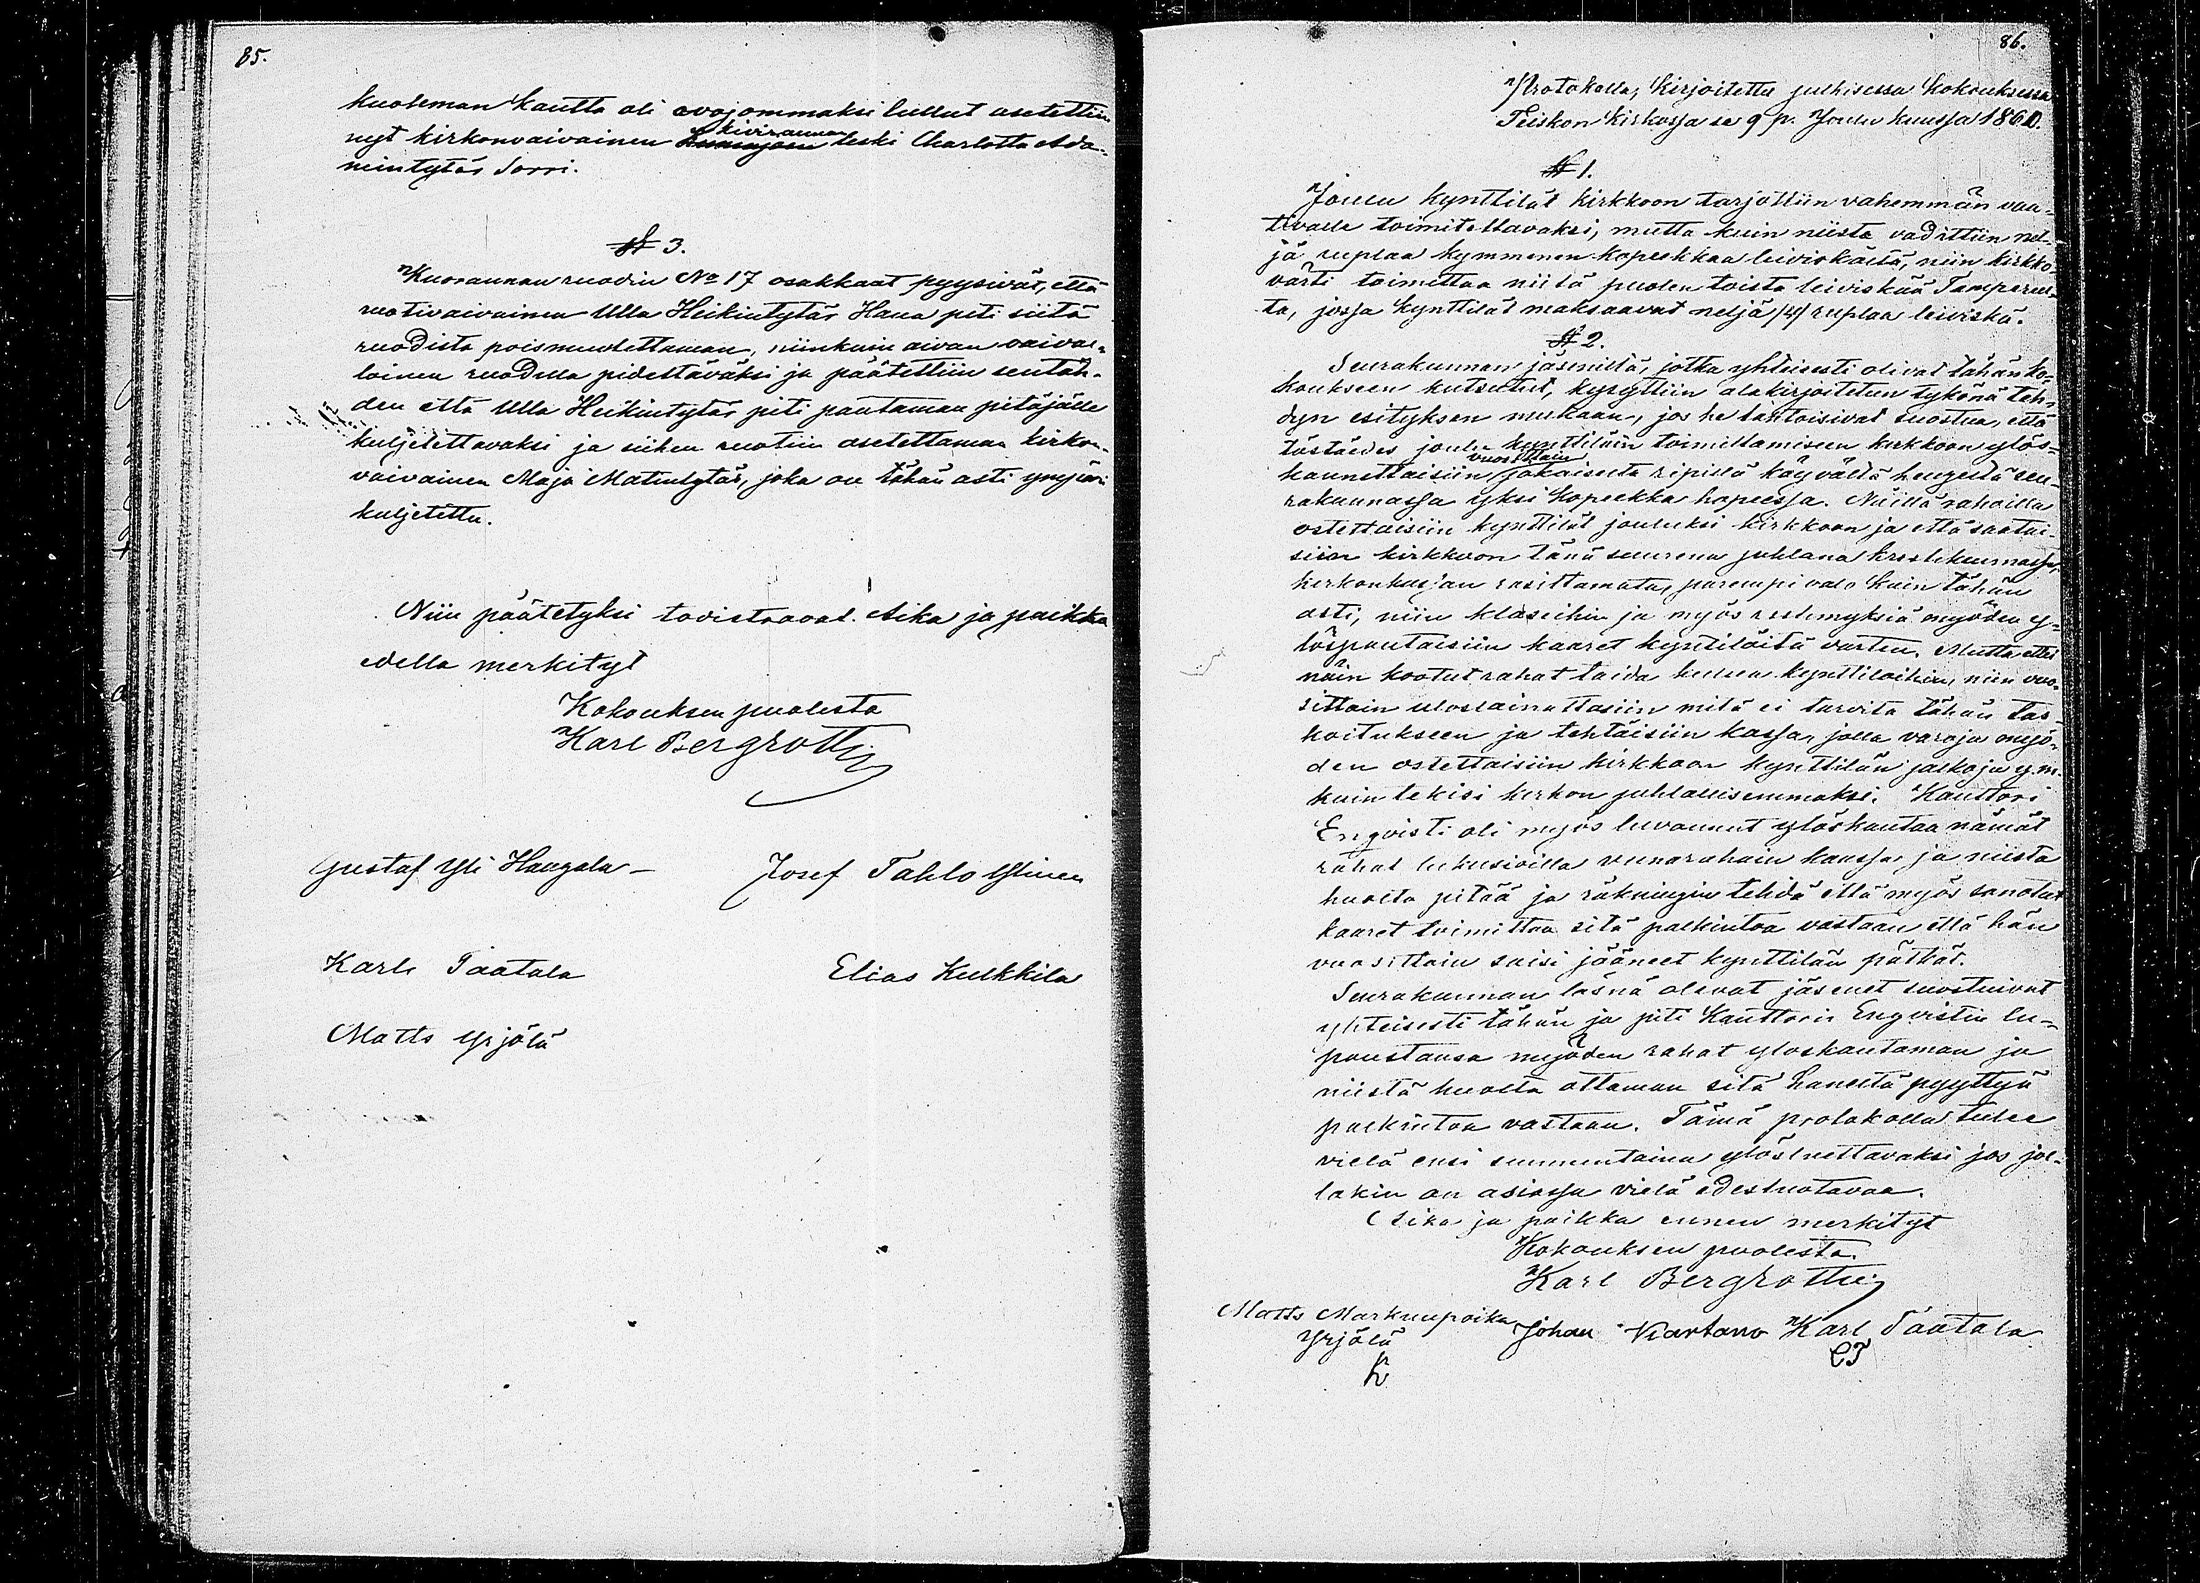 85.
kuoleman kautta oli avojommaksi tullut asetettiin
nyt kirkonvaivainen kivirannan leski Charlotta Ada-
mintytär Sorri.
§ 3.
Kuorannan ruodin No 17 osakkaat pyysivät, että
ruotivaivainen Ulla Heikintytär Hana piti siitä
ruodista poismuutettaman, niinkuin aivan vaival-
loinen ruodilla pidettäväksi ja päätettiin sentäh-
den että Ulla Heikintytär piti pantaman pitäjälle
kuljetettavaksi ja siihen ruotiin asetettaman kirkon-
vaivainen Maja Matintytär, joka on tähän asti ympäri
kuljetettu.
Niin päätetyksi todistaavat. Aika ja paikka
edellä merkityt
Kokouksen puolesta
Karl Bergroth
Gustaf Yli Haugala
Josef Tahlo Ylinen
Karle Taatala
Elias Kulkkila
Matts Yrjölä
86.
Protokolla, Kirjoitettu julkisessa Kokouksessa
Teiskon Kirkossa se 9 p. Joulu kuussa 1860.
§ 1.
Joulu kynttilät kirkkoon tarjottiin vähemmän vaa-
tivalle toimitettavaksi, mutta kuin niistä vadittiin nel-
jä ruplaa kymmenen kopeekkaa leiviskästä, niin kirkko-
värti toimittaa niitä puolen toista leiviskää Tampereel-
ta, jossa kynttilät maksaavat neljä /4/ ruplaa leiviskä.
§ 2.
Seurakunnan jäseniltä, jotka yhteisesti olivat tähän ko-
koukseen kutsutut, kysyttiin alakirjoitetun tykönä teh-
dyn esityksen mukaan, jos he tahtoisivat suostua, että
tästäedes joulu kynttiläin toimittamiseen kirkkoon ylös-
kannettaisiin vuosittain jokaiselta ripillä käyvältä hengeltä seu-
rakunnassa yksi kopeekka hopeessa. Niillä rahoilla
ostettaisiin kynttilät jouluksi kirkkoon ja että saatai-
siin kirkkoon tänä suurena juhlana kristikunnassa,
kirkonkassan rasittamata, parempi valo kuin tähän
asti, niin klaseihin ja myös restinyksiä myöden y-
löspantaisiin kaaret kyntilöitä varten. Mutta ettei
näin kootut rahat taida kulua kynttilöihin, niin vuo-
sittain uloslainattaisiin mitä ei tarvita tähän tar-
koitukseen ja tehtäisiin kassa, jolla varoja myö-
den ostettaisiin kirkkoon kynttilän jalkoja y.m.
kuin tekisi kirkon juhlallisemmaksi. Kanttori
Enqvisti oli myös luvannut ylöskantaa nämät
rahat lukusioilla vunarahain kanssa ja niistä
huolta pitää ja räkningin tehdä että myös sanotut
kaaret toimittaa sitä palkintoa vastaan että hän
vuosittain saisi jääneet kynttilän pätkät.
Seurakunnan läsnä olevat jäsenet suostuivat
yhteisesti tähän ja piti Kanttorin Enqvistin lu-
paustansa myöden rahat yloskantaman ja
niistä huolta ottaman sitä häneltä pyyttyä
palkintoa vastaan. Tämä protokolla tulee
vielä ensi sunnuntaina ylösluettavaksi jos jol-
lakin on asiassa vielä edestuotavaa.
Aika ja paikka ennen merkityt
Kokouksen puolesta.
Karl Bergroth
Matts Markunpoika
Yrjölä
Johan Kartano Karl Taatala